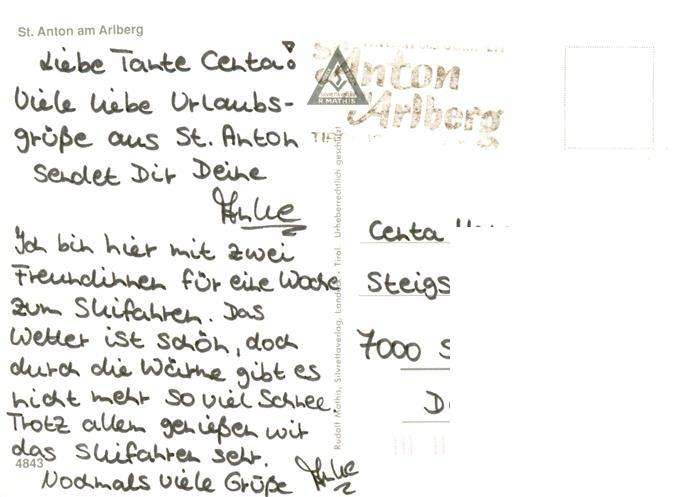 St. Anton am Arlberg
Liebe Tante Centa!
Viele liebe Urlaubs-
grüße aus St. Anton
Sendet Dir Deine
Anke
Ich bin hier mit zwei
Freundinnen für eine Woche
zum Skifahren. Das
Wetter ist schön, doch
durch die Wärme gibt es
nicht mehr so viel Schnee.
Trotz allem genießen wir
das Skifahren sehr.
Nochmals viele Grüße Anke
4843
Rudolf Mathis, Silvrettaverlag, Landeck - Tirol. Urheberrechtlich geschützt
R. MATHIS
Anton
Arlberg
Centa
Steigs
7000 S
D